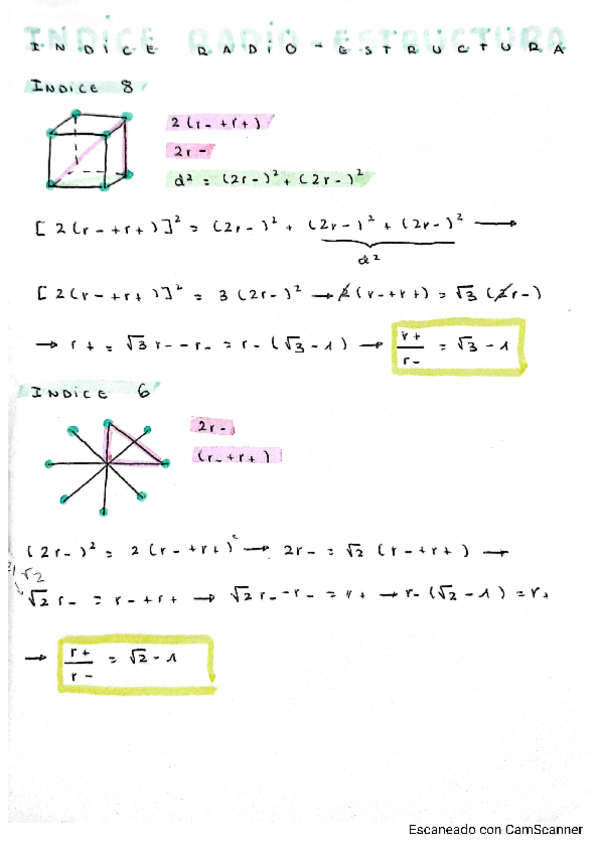 INDICE RADIO-ESTRUCTURA
INDICE 8
2(r- + r+)
2r-
d² = (2r-)² + (2r-)²
[2(r- + r+)]² = (2r-)² + (2r-)² + (2r-)² →
d²
[2(r- + r+)]² = 3(2r-)² → 2(r- + r+) = √3 (2r-)
→ r+ = √3 r- - r- = r- (√3 - 1) → r+/r- = √3 - 1
INDICE 6
2r-
(r- + r+)
(2r-)² = 2(r- + r+)² → 2r- = √2 (r- + r+) →
√2 r- = r- + r+ → √2 r- - r- = r+ → r- (√2 - 1) = r+
→ r+/r- = √2 - 1
Escaneado con CamScanner